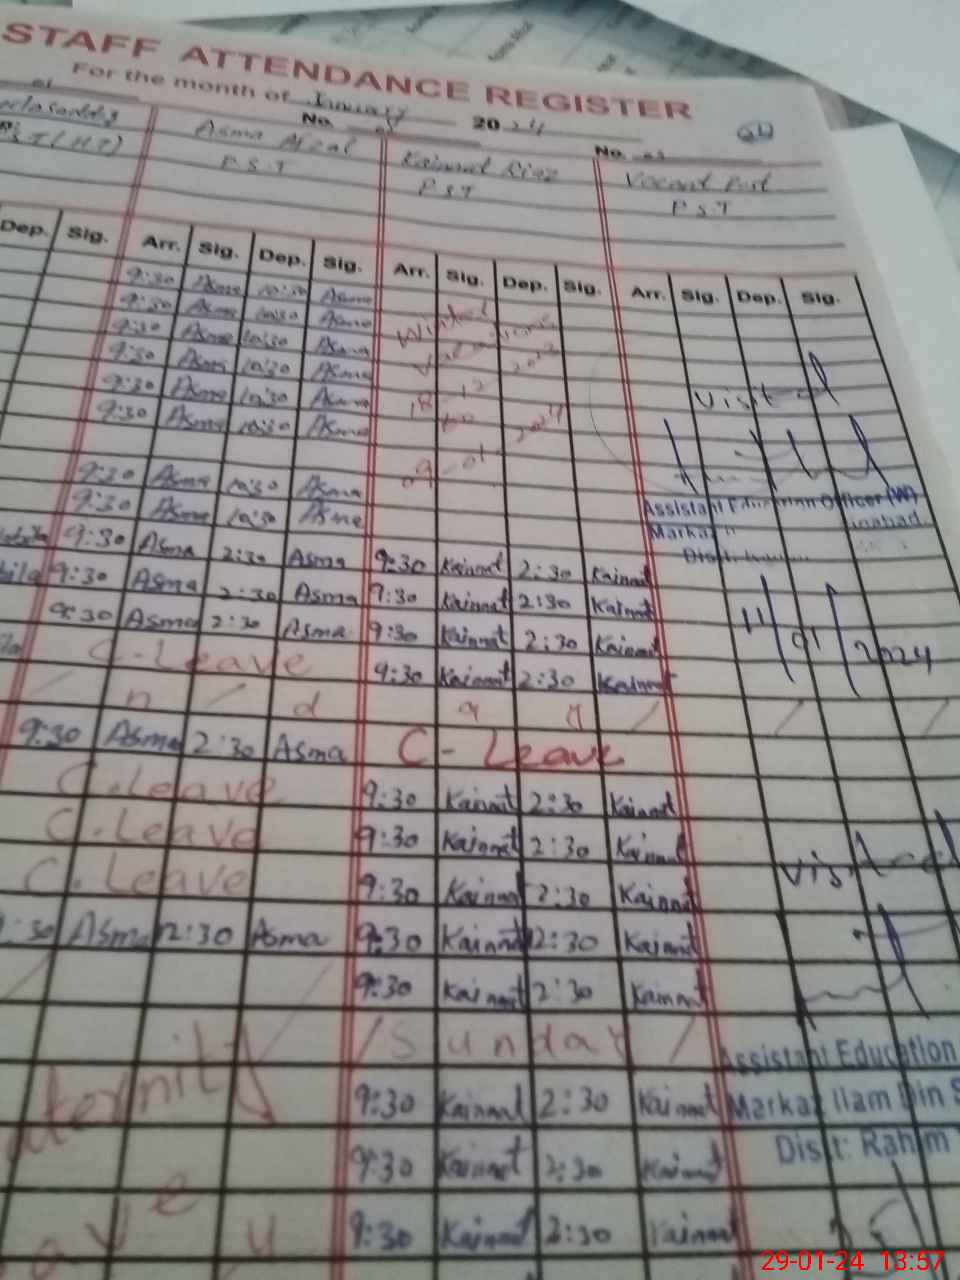 STAFF ATTENDANCE REGISTER
For the month of January 2024
No. No.
Asma Afzal Kainnat Riaz Vacant Post
P.S.T (H.T) P.S.T P.S.T P.S.T
Dep. Sig. Arr. Sig. Dep. Sig. Arr. Sig. Dep. Sig. Arr. Sig. Dep. Sig.
9:30 Asma 10:30 Asma
9:30 Asma 10:30 Asma Winter
9:30 Asma 10:30 Asma Vacations
9:30 Asma 10:30 Asma 18-12 2023
9:30 Asma 10:30 Asma to visited
9:30 Asma 10:30 Asma 09-01 2024
9:30 Asma 10:30 Asma
9:30 Asma 10:30 Asma Assistant Education Officer (W)
Markaz
9:30 Asma 2:30 Asma 9:30 Kainnat 2:30 Kainnat Distt:
9:30 Asma 2:30 Asma 9:30 Kainnat 2:30 Kainnat
9:30 Asma 2:30 Asma 9:30 Kainnat 2:30 Kainnat 11/01/2024
C-Leave 9:30 Kainnat 2:30 Kainnat
/ n / d a y / / /
9:30 Asma 2:30 Asma C-Leave
C.Leave 9:30 Kainnat 2:30 Kainnat
C.Leave 9:30 Kainnat 2:30 Kainnat visited
C.Leave 9:30 Kainnat 2:30 Kainnat
9:30 Asma 2:30 Asma 9:30 Kainnat 2:30 Kainnat
9:30 Kainnat 2:30 Kainnat
/ Sunday /
Assistant Education
9:30 Kainnat 2:30 Kainnat Markaz Ilam Din
9:30 Kainnat 2:30 Kainnat Distt: Rahim
9:30 Kainnat 2:30 Kainnat
29-01-24 13:57